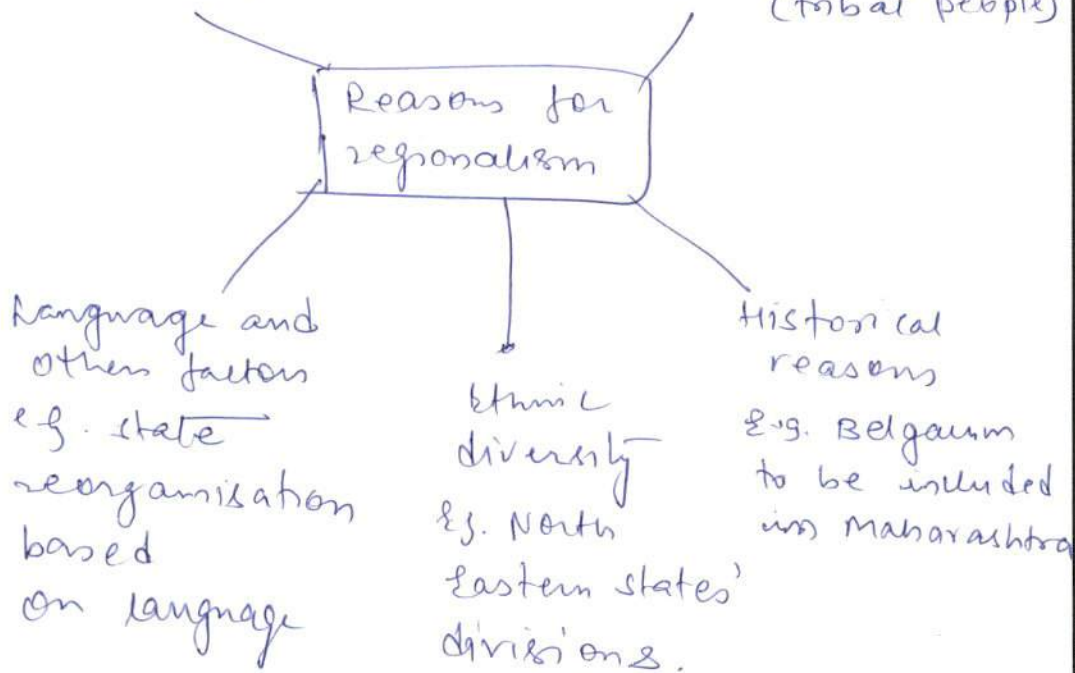 (tribal people)
Reasons for
regionalism
Language and
others factors
eg. state
reorganisation
based
on language
Ethnic
diversity
Eg. North
Eastern states'
divisions.
Historical
reasons
E.g. Belgaum
to be included
in Maharashtra